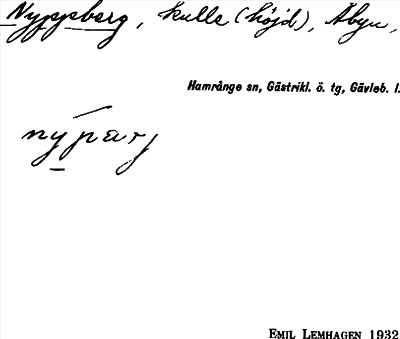 Nyppberg, kulle (höjd), Åbyn,
Hamrånge sn, Gästrikl. ö. tg, Gävleb. l.
nýparj
EMIL LEMHAGEN 1932